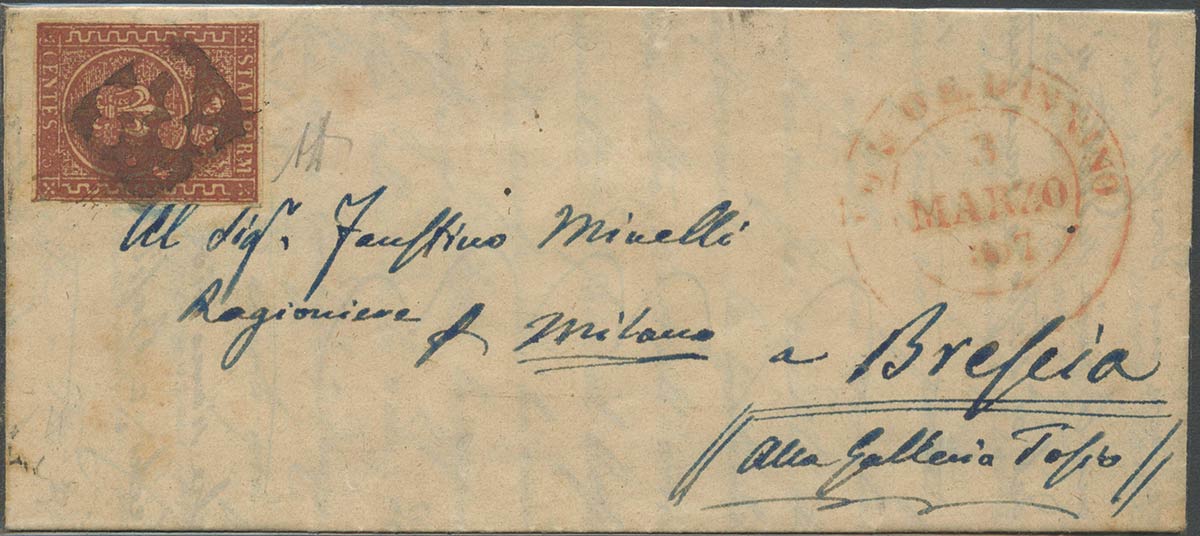 STATI PARM
CENTES
3
MARZO
Al Sigr. Faustino Minelli
Ragioniere
Milano
a Brescia
Alla Galleria Tosio